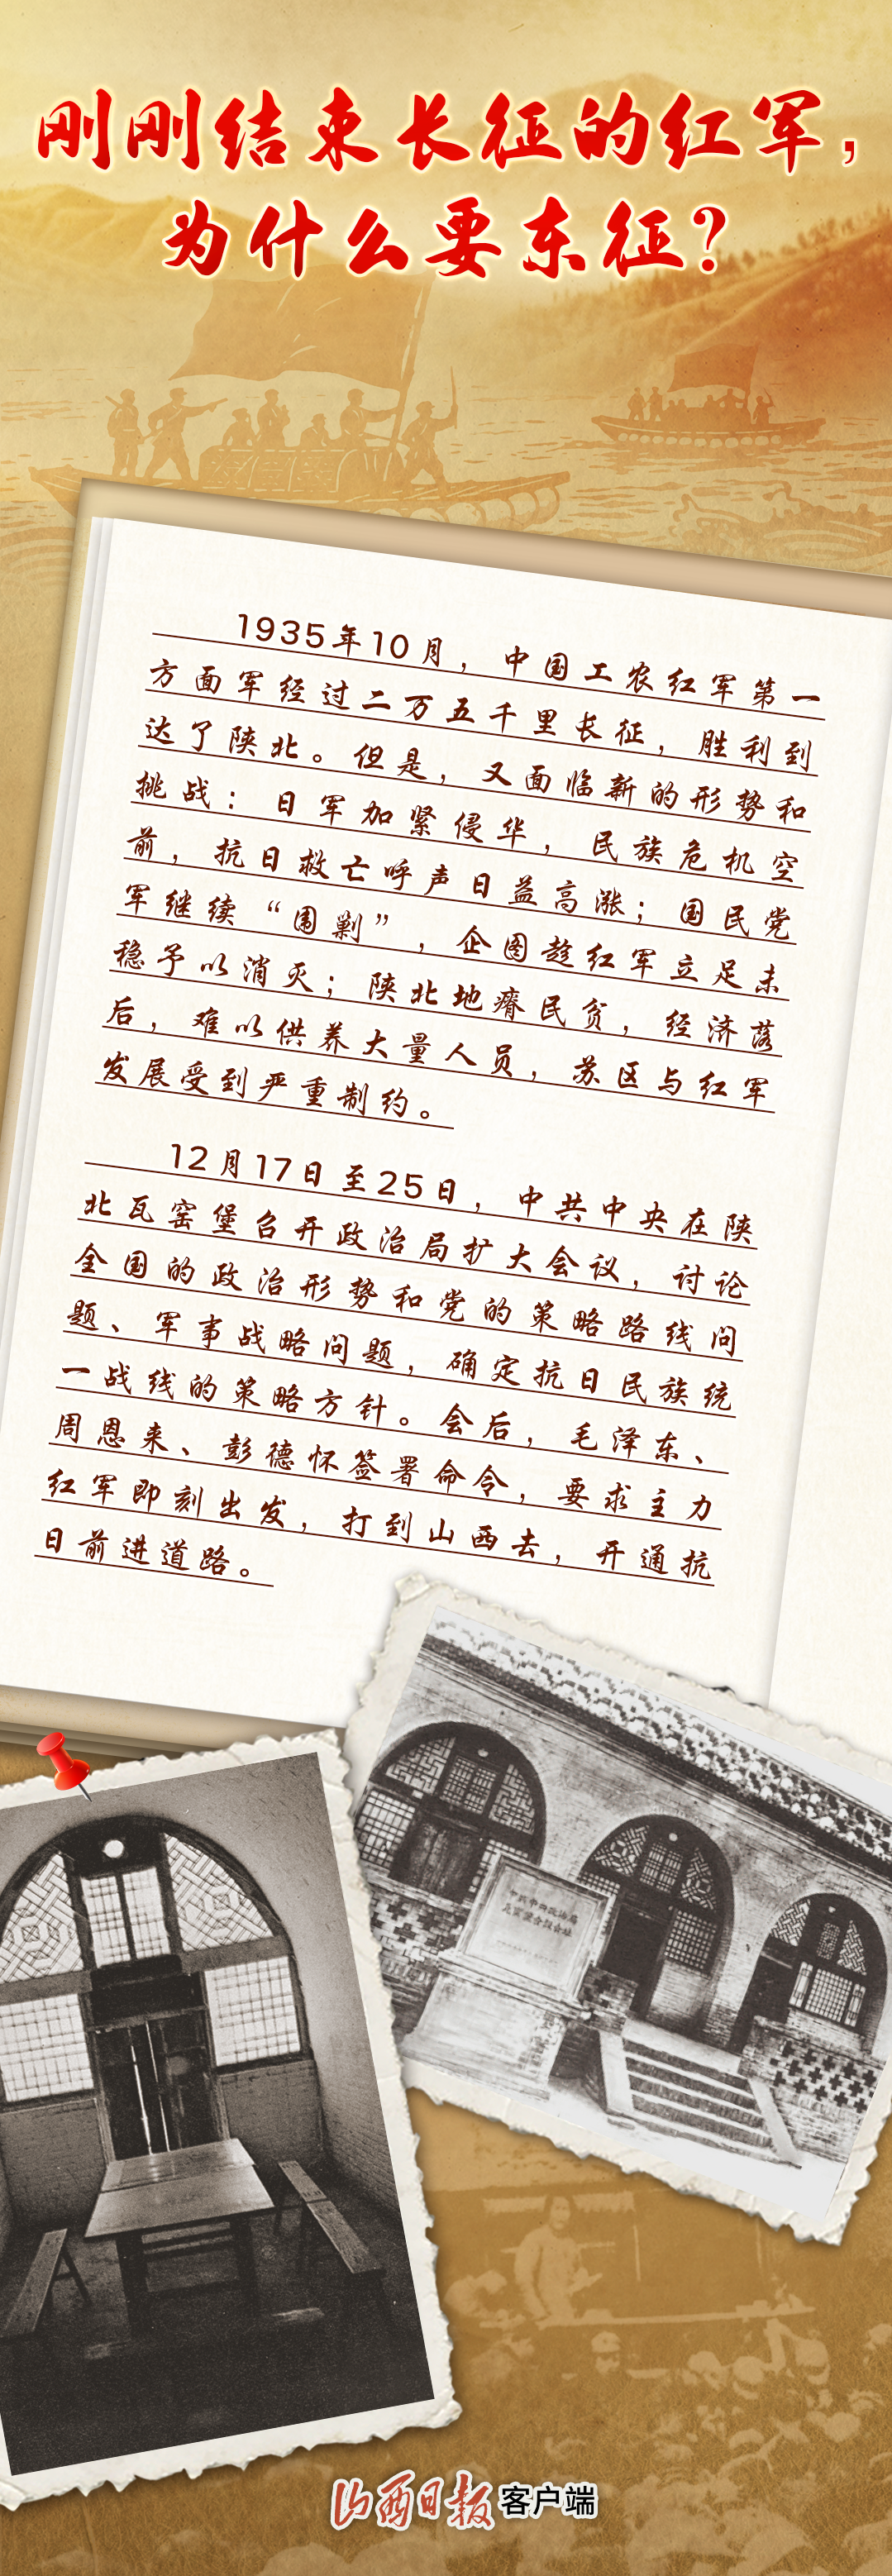 刚刚结束长征的红军，
为什么要东征？
1935年10月，中国工农红军第一
方面军经过二万五千里长征，胜利到
达了陕北。但是，又面临新的形势和
挑战：日军加紧侵华，民族危机空
前，抗日救亡呼声日益高涨；国民党
军继续“围剿”，企图趁红军立足未
稳予以消灭；陕北地瘠民贫，经济落
后，难以供养大量人员，苏区与红军
发展受到严重制约。
12月17日至25日，中共中央在陕
北瓦窑堡召开政治局扩大会议，讨论
全国的政治形势和党的策略路线问
题、军事战略问题，确定抗日民族统
一战线的策略方针。会后，毛泽东、
周恩来、彭德怀签署命令，要求主力
红军即刻出发，打到山西去，开通抗
日前进道路。
中共中央政治局
瓦窑堡会议会址
山西日报客户端